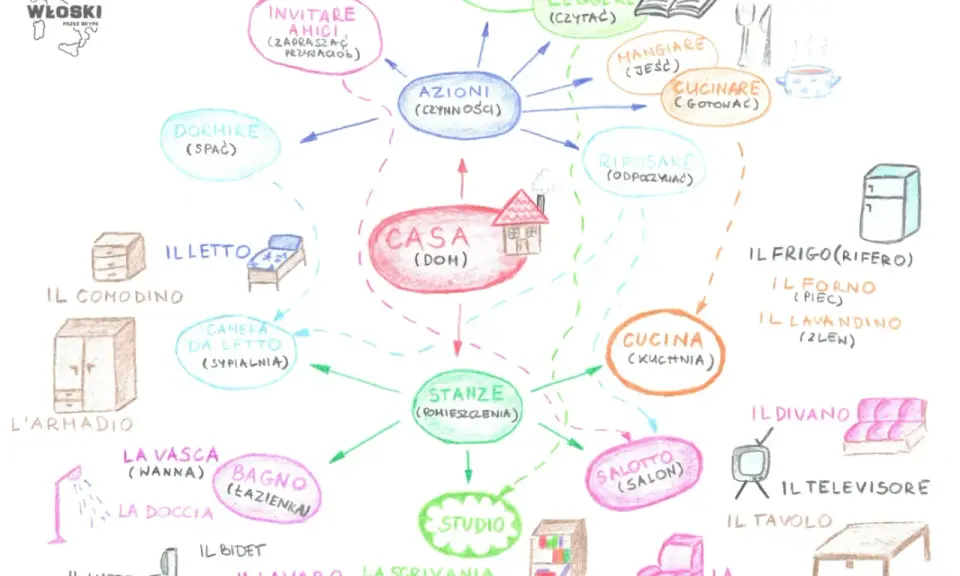 WŁOSKI
PRZEZ SKYPE
INVITARE
AMICI
(ZAPRASZAĆ
PRZYJACIÓŁ)
LEGGERE
(CZYTAĆ)
MANGIARE
(JEŚĆ)
CUCINARE
(GOTOWAĆ)
AZIONI
(CZYNNOŚCI)
DORMIRE
(SPAĆ)
RIPOSARE
(ODPOCZYWAĆ)
CASA
(DOM)
IL LETTO
IL COMODINO
IL FRIGO(RIFERO)
IL FORNO
(PIEC)
IL LAVANDINO
(ZLEW)
CAMERA
DA LETTO
(SYPIALNIA)
CUCINA
(KUCHNIA)
STANZE
(POMIESZCZENIA)
L'ARMADIO
IL DIVANO
LA VASCA
(WANNA)
BAGNO
(ŁAZIENKA)
SALOTTO
(SALON)
IL TELEVISORE
LA DOCCIA
STUDIO
IL TAVOLO
IL BIDET
IL LAVABO
LA SCRIVANIA
LA